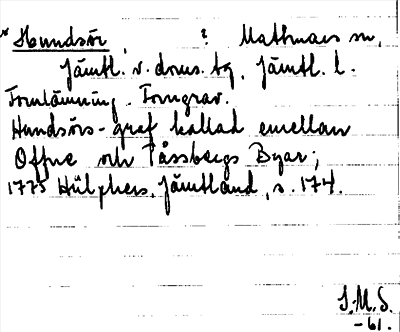 * Hundsör, ? Mattmars sn,
Jämtl. v. doms. tg, Jämtl. l.
Fornlämning. Forngrav.
Hundsörs-graf kallad emellan
Offne och Påssbergs Byar;
1775 Hülphers, Jämtland, s. 174.
S.M.S.
-61.